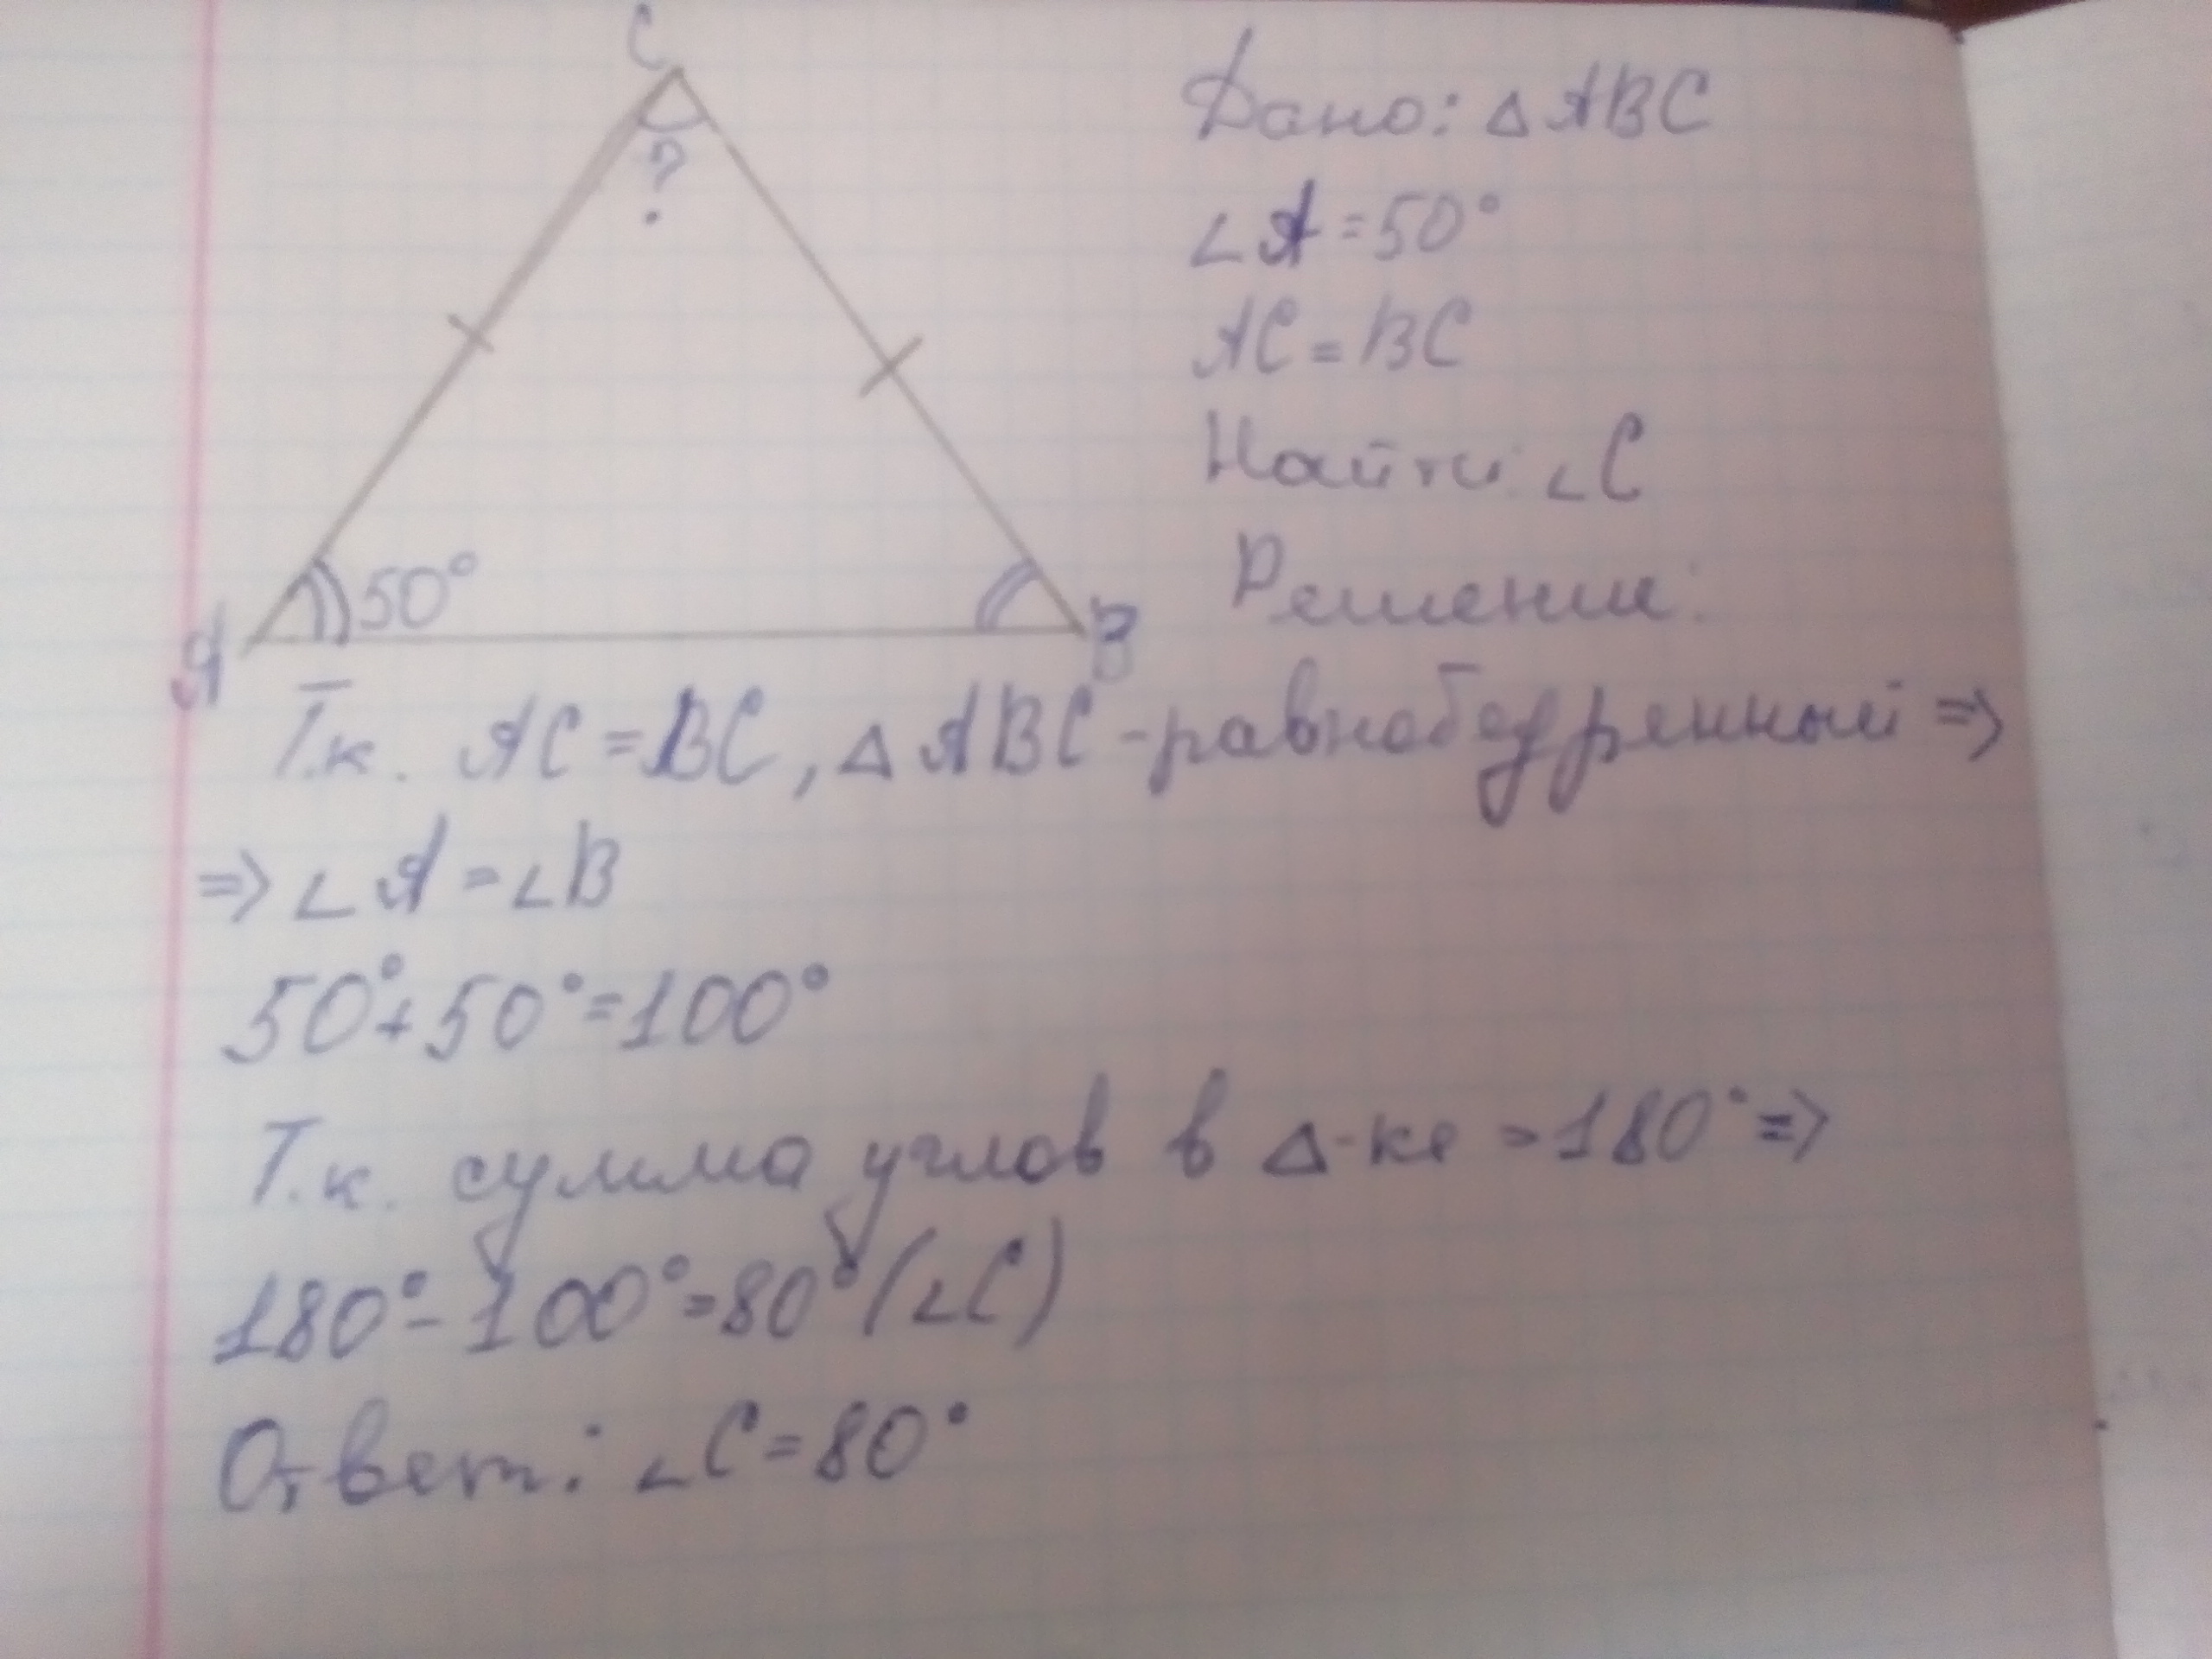 C
?
A
50°
B
Дано: △ABC
∠A=50°
AC=BC
Найти: ∠C
Решение:
Т.к. AC=BC, △ABC-равнобедренный =>
=> ∠A=∠B
50°+50°=100°
Т.к. сумма углов в △-ке =180° =>
180°-100°=80° (∠C)
Ответ: ∠C=80°